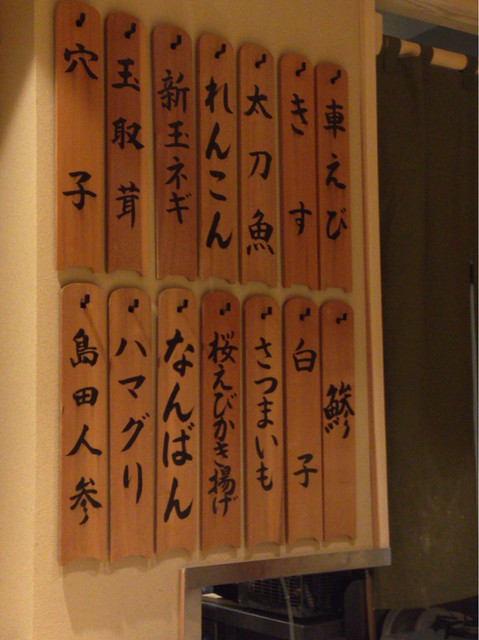 車えび
きす
太刀魚
れんこん
新玉ネギ
玉取茸
穴子
鯵
白子
さつまいも
桜えびかき揚げ
なんばん
ハマグリ
島田人参